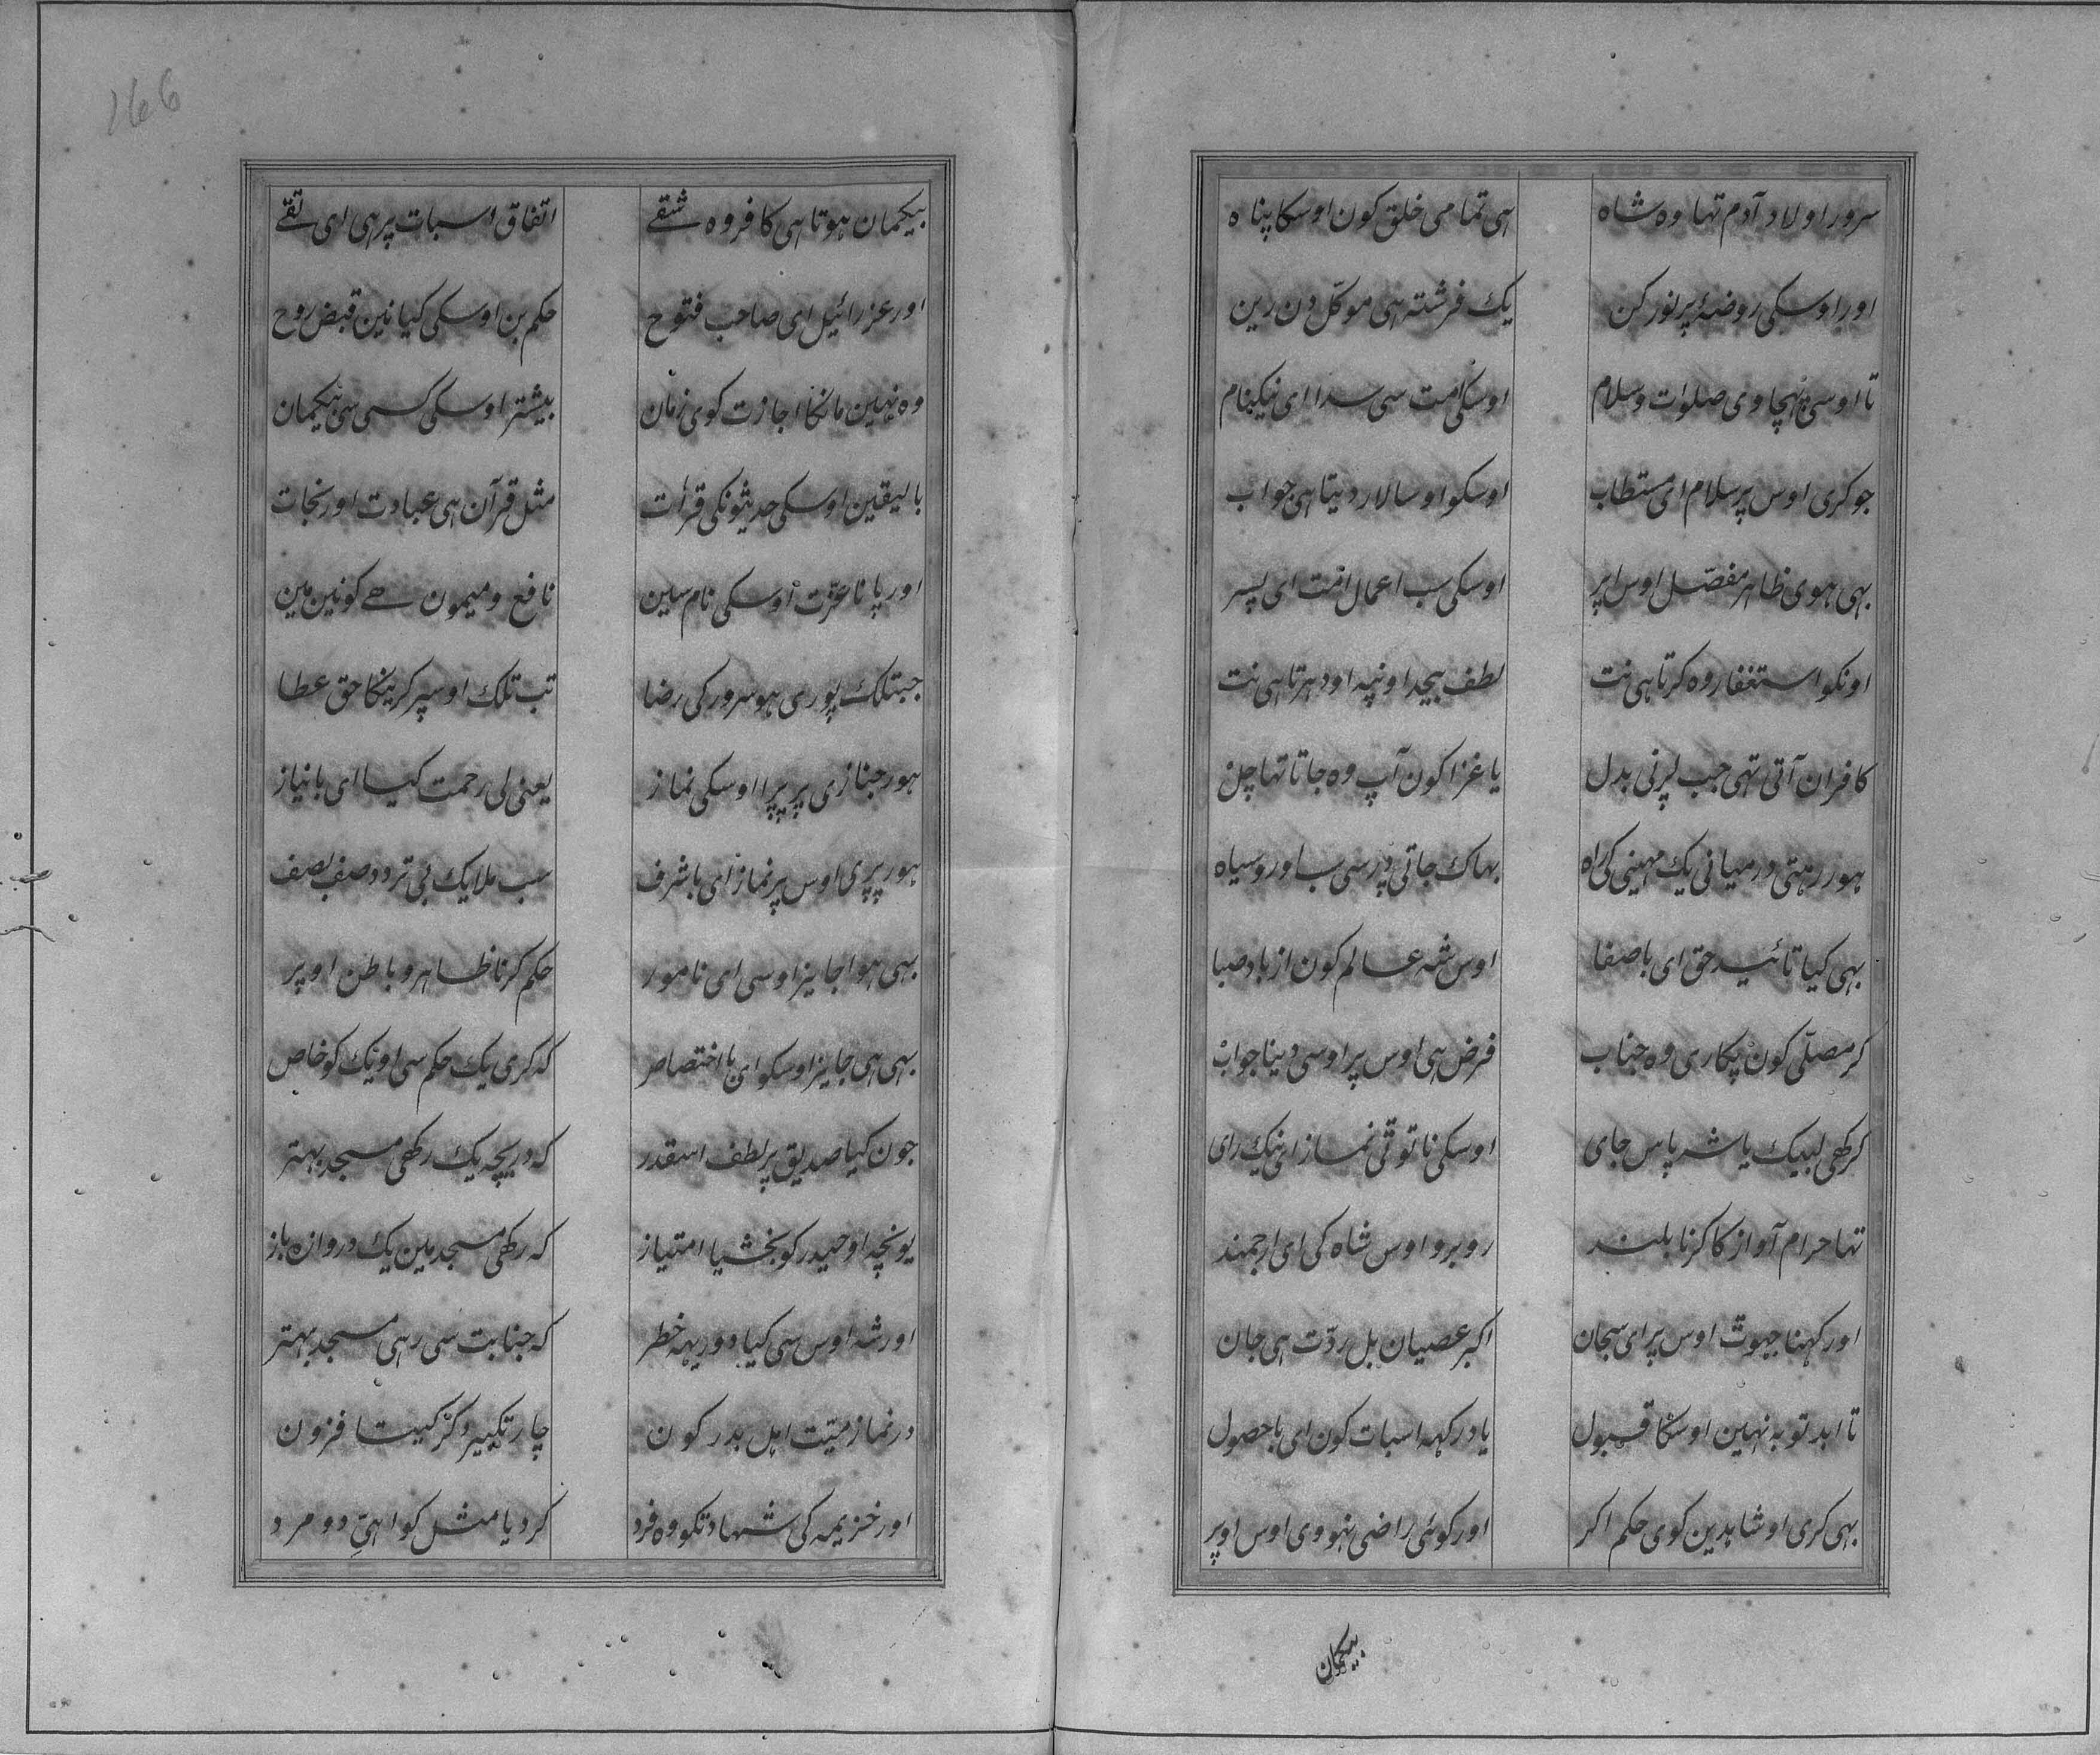 سرور اولاد آدم تہا وہ شاہ ہی تمامی خلق کون اوسکا پناہ
اور اوسکی روضۂ پر نور کن یک فرشتہ ہی موکّل دن رین
تا اوسی پہنچاوی صلوات و سلام اوسکی امت سی سدا ای نیکنام
جو کری اوس پر سلام ای مستطاب اوسکو او سالار دیتا ہی جواب
بہی ہوی ظاہر مفصّل اوس اپر اوسکی سب اعمال امّت ای پسر
اونکو استغفار وہ کرتا ہی نت لطف بیحد اونپہ او دہرتا ہی نت
کافران آتی تہی جب لڑنی بدل یا غزا کون آپ وہ جاتا تہا چل
ہور رہتی درمیانی یک مہینی کی راہ بہاک جاتی ڈر سی سب او رو سیاہ
بہی کیا تائید حق ای با صفا اوس شہ عالم کون از باد صبا
کر مصلّی کون پکاری وہ جناب فرض ہی اوس پر اوسی دینا جواب
کر کہی لبیک یا شہ پاس جای اوسکی نا توٹی نماز ای نیک رای
تہا حرام آواز کا کرنا بلند روبرو اوس شاہ کی ای ارجمند
اور کہنا جہوت اوس پر ای سجان اکبر عصیان بل ردّت ہی جان
تا ابد توبہ نہین اوسکا قبول یاد رکہہ اسبات کون ای با حصول
بہی کری او شاہدین کوی حکم اکر اور کوئی راضی نہووی اوس اوپر
بیکمان
166
بیکمان ہوتا ہی کافر وہ شقے اتفاق اسبات پر ہی ای تقے
اور عزرائیل ای صاحب فتوح حکم بن اوسکی کیا نین قبض روح
وہ نہین مانکا اجازت کوی زمان بیشتر اوسکی کسی سی بیکمان
بالیقین اوسکی حدیثونکی قرأت مثل قرآن ہی عبادت اور نجات
اور پانا عزّت اوسکی نام سین نافع و میمون ہے کونین مین
جبتلک پوری ہو سرور کی رضا تب تلک اوسپر کرینکا حق عطا
ہور جنازی پر پڑا اوسکی نماز یعنی لی رحمت کیا ای با نیاز
ہور پڑی اوس پر نماز ای با شرف سب ملایک بی تردد صف بصف
بہی ہوا جایز اوسی ای نامور حکم کرنا ظاہر و باطن اوپر
بہی ہی جایز اوسکو ای با اختصاص کہ کری یک حکم سی او یک کو خاص
جون کیا صدیق پر لطف اسقدر کہ دریچہ یک رکہی مسجد بہتر
یونچہ او حیدر کو بخشیا امتیاز کہ رکہی مسجد مین یک دروازہ باز
اور شہ اوس سی کیا دور یہہ خطر کہ جنابت سی رہی مسجد بہتر
در نماز میّت اہل بدر کون چار تکبیر و کر کیتا فزون
اور خزیمہ کی شہادتکو وہ فرد کر دیا مثل کواہیِ دو مرد